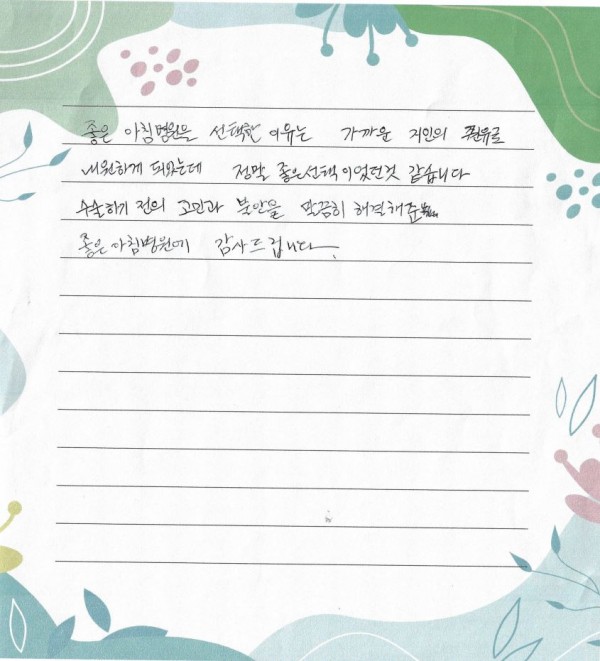 좋은 아침병원을 선택한 이유는 가까운 지인의 권유로
내원하게 되었는데 정말 좋은선택이었던것 같습니다
수술하기 전의 고민과 불안을 말끔히 해결해준
좋은아침병원에 감사드립니다.